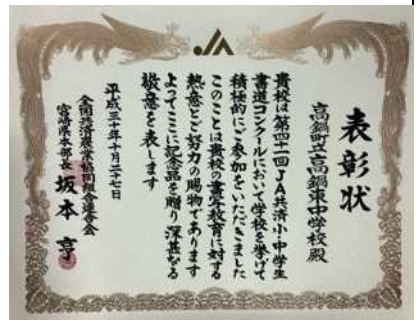 表彰状
高鍋町立高鍋東中学校殿
貴校は第四十一回JA共済小・中学生
書道コンクールにおいて学校を挙げて
積極的にご参加をいただきました
このことは貴校の書写教育に対する
熱意とご努力の賜物であります
よってここに記念品を贈り深甚なる
敬意を表します
平成三十年十月二十七日
全国共済農業協同組合連合会
宮崎県本部長 坂本 亨